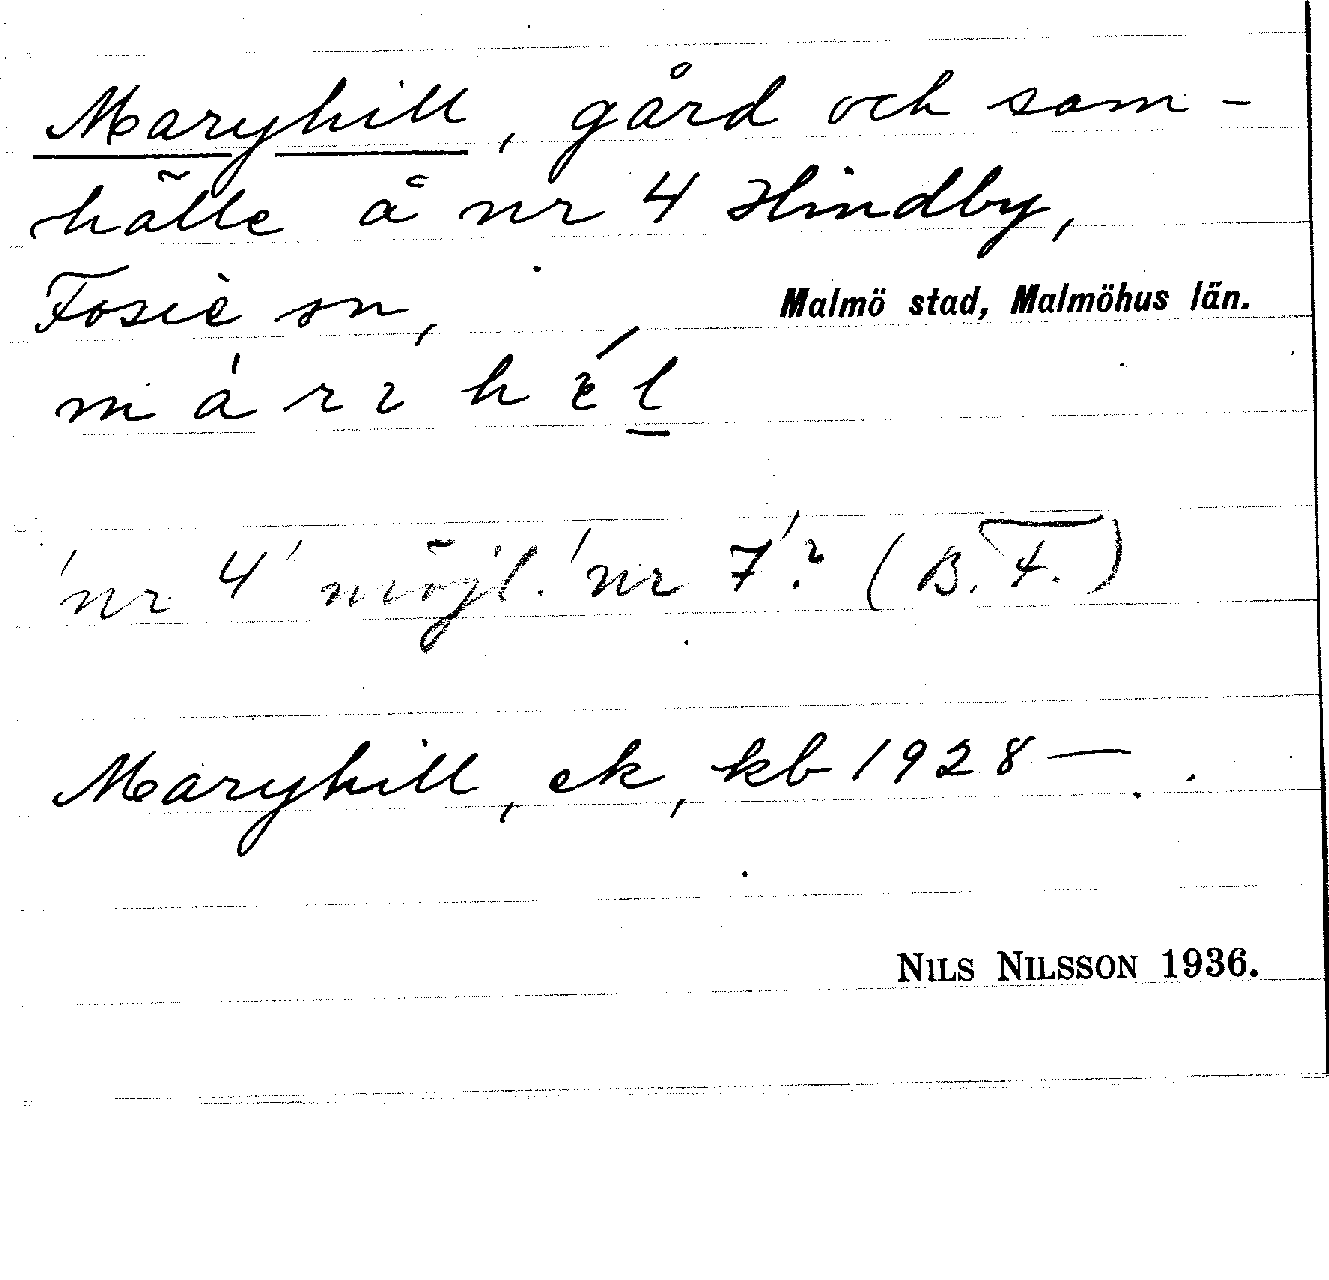 Maryhill, gård och sam-
hälle å nr 4 Hindby,
Fosie sn, Malmö stad, Malmöhus län.
márihél
'nr 4' möjl. 'nr 7'? (B.F.)
Maryhill, ek, kb 1928 —.
NILS NILSSON 1936.